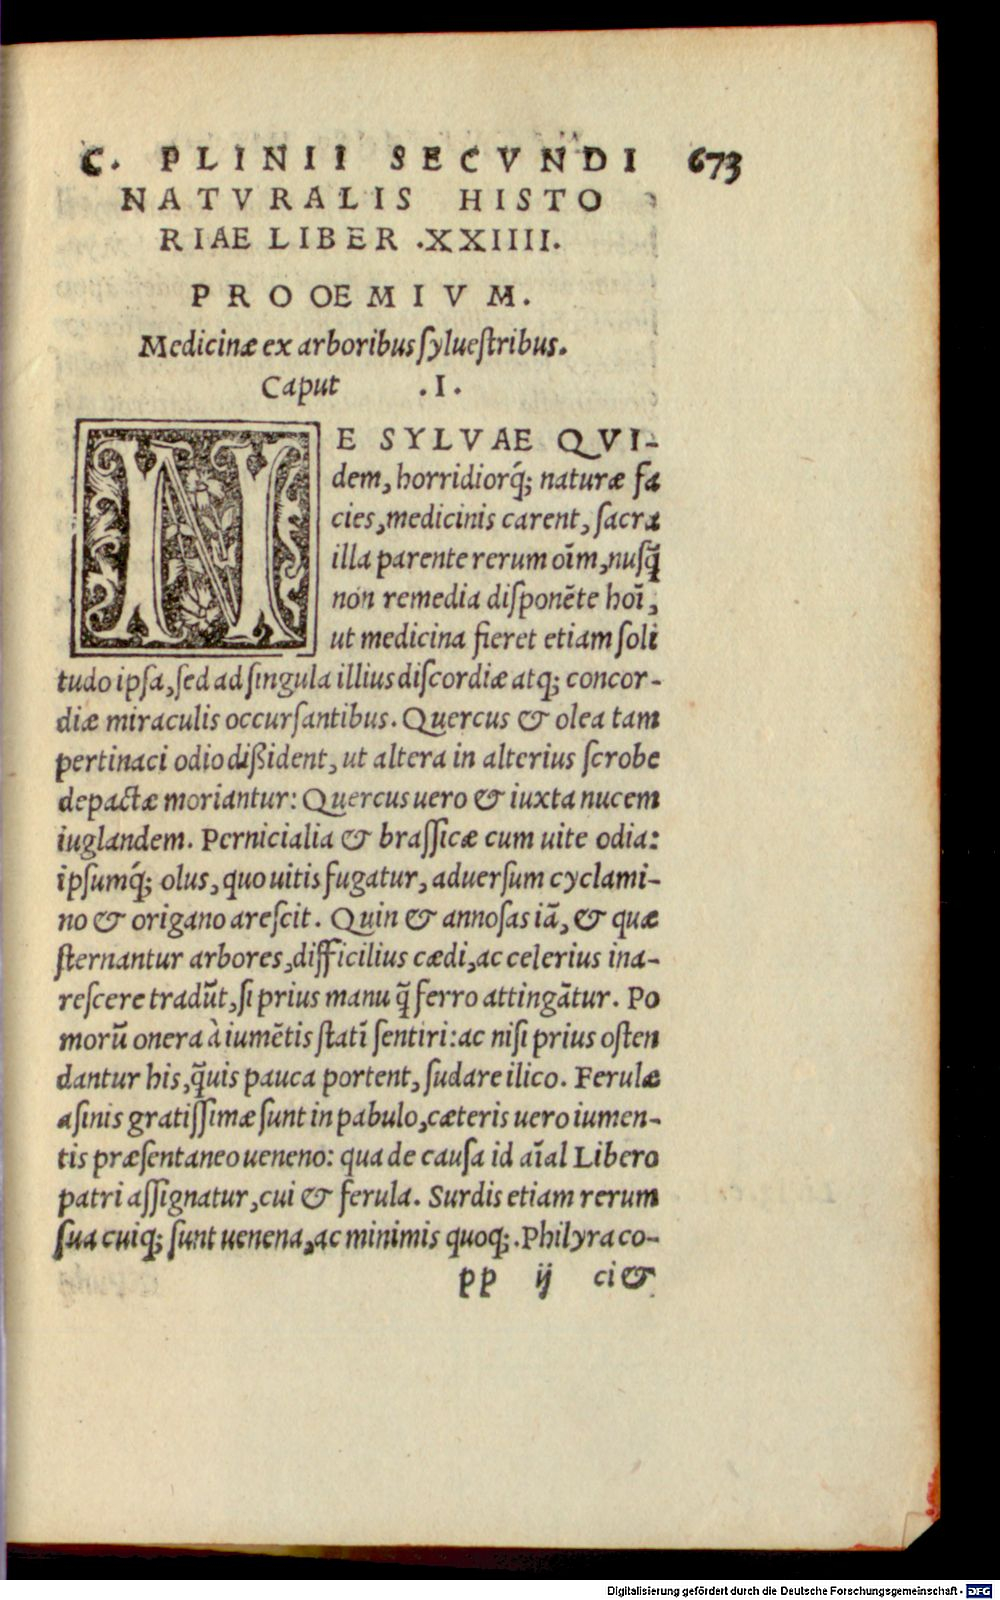 C. PLINII SECVNDI 673
NATVRALIS HISTO
RIAE LIBER .XXIIII.
PROOEMIVM.
Medicinæ ex arboribus ſylueſtribus.
Caput .I.
NE SYLVAE QVI-
dem, horridiorq́; naturæ fa
cies, medicinis carent, ſacra
illa parente rerum oĩm, nuſq̃
non remedia diſponẽte hoĩ,
ut medicina fieret etiam ſoli
tudo ipſa, ſed ad ſingula illius diſcordiæ atq; concor-
diæ miraculis occurſantibus. Quercus & olea tam
pertinaci odio dißident, ut altera in alterius ſcrobe
depactæ moriantur: Quercus uero & iuxta nucem
iuglandem. Pernicialia & braſſicæ cum uite odia:
ipſumq́; olus, quo uitis fugatur, aduerſum cyclami-
no & origano areſcit. Quin & annoſas iã, & quæ
ſternantur arbores, difficilius cædi, ac celerius ina-
reſcere tradũt, ſi prius manu q̃ ferro attingãtur. Po
morũ onera à iumẽtis ſtatĩ ſentiri: ac niſi prius oſten
dantur his, q̃uis pauca portent, ſudare ilico. Ferulæ
aſinis gratiſſimæ ſunt in pabulo, cæteris uero iumen-
tis præſentaneo ueneno: qua de cauſa id aĩal Libero
patri aſſignatur, cui & ferula. Surdis etiam rerum
ſua cuiq; ſunt uenena, ac minimis quoq;. Philyra co-
pp ij ci&
Digitalisierung gefördert durch die Deutsche Forschungsgemeinschaft - DFG